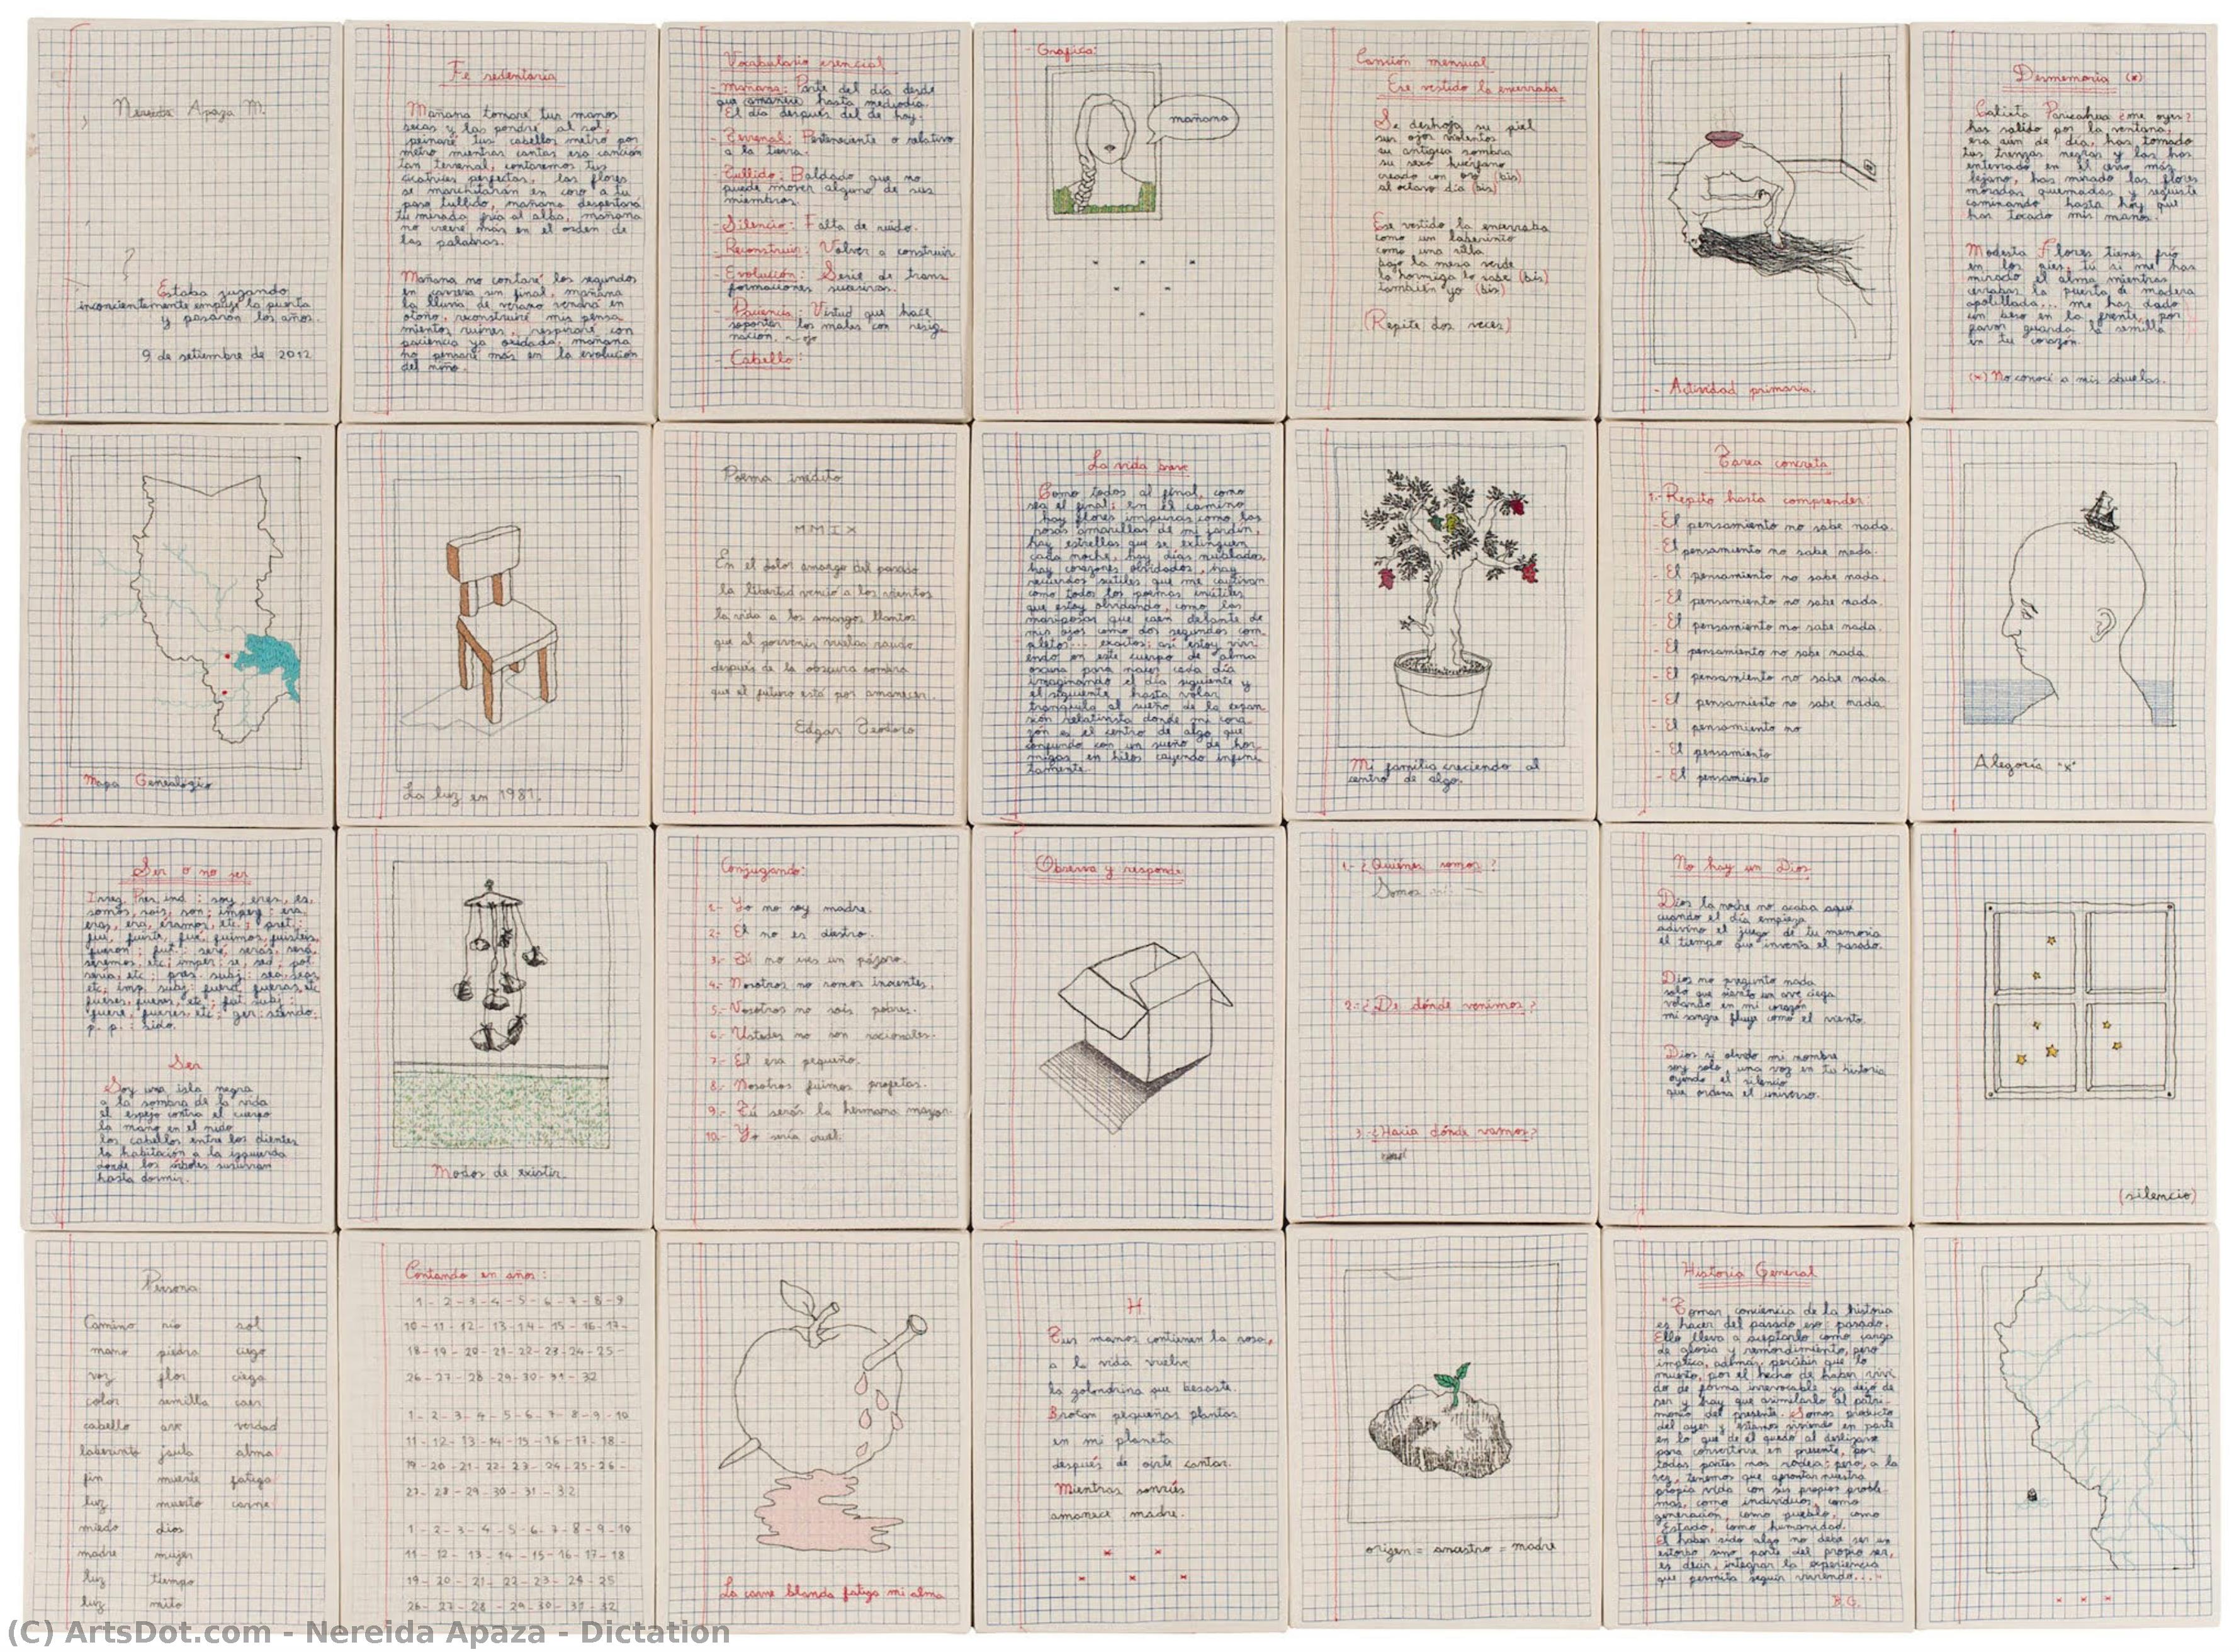 Nereida Apaza M.
Estaba jugando
inconcientemente empujé la puerta
y pasaron los años.
9 de setiembre de 2012
Fe sedentaria
Mañana tomaré tus manos
secas y las pondré al sol,
peinaré tus cabellos metro por
metro mientras cantas esa canción
tan terrenal, contaremos tus
cicatrices perfectas, las flores
se marchitarán en coro a tu
paso tullido, mañana despertará
tu mirada fría al alba, mañana
no creeré más en el orden de
las palabras.
Mañana no contaré los segundos
en carrera sin final, mañana
la lluvia de verano vendrá en
otoño, reconstruiré mis pensa
mientos ruines, respiraré con
paciencia ya oxidada, mañana
no pensaré más en la evolución
del niño.
Vocabulario esencial
- Mañana: Parte del día desde
que amanece hasta mediodía.
El día después del de hoy.
- Terrenal: Perteneciente o relativo
a la tierra.
- Tullido: Baldado que no
puede mover alguno de sus
miembros.
- Silencio: Falta de ruido.
- Reconstruir: Volver a construir
- Evolución: Serie de trans
formaciones sucesivas.
- Paciencia: Virtud que hace
soportar los males con resig
nación. ojo
- Cabello:
- Gráfica:
mañana
Canción mensual
Ese vestido la encerraba
Se deshoja su piel
sus ojos violentos
su antigua sombra
su sexo huérfano
creado con oro (bis)
al octavo día (bis)
Ese vestido la encerraba
como un laberinto
como una silla
bajo la mesa verde
la hormiga lo sabe (bis)
también yo (bis)
(Repite dos veces)
- Actividad primaria.
Desmemoria (*)
Calista Paricahua ¿me oyes?
has salido por la ventana,
era aún de día, has tomado
tus trenzas negras y las has
enterrado en el cerro más
lejano, has mirado las flores
moradas quemadas y seguiste
caminando hasta hoy que
has tocado mis manos.
Modesta Flores tienes frío
en los pies, tú si me has
mirado el alma mientras
cerrabas la puerta de madera
apolillada... me has dado
un beso en la frente, por
favor guarda la semilla
en tu corazón.
(*) No conocí a mis abuelas.
Mapa Genealógico
La luz en 1981.
Poema inédito
MMIX
En el dolor amargo del pasado
la libertad venció a los vientos
la vida a los amargos llantos
que al porvenir vuelas raudo
después de la obscura sombra
que el futuro está por amanecer.
Edgar Teodoro
La vida breve
Como todos al final, como
sea el final; en el camino
hay flores impuras como las
rosas amarillas de mi jardín,
hay estrellas que se extinguen
cada noche, hay días nublados,
hay corazones olvidados, hay
recuerdos sutiles que me cautivan
como todos los poemas inútiles
que estoy olvidando, como las
mariposas que caen delante de
mis ojos como dos segundos com
pletos... exactos; así estoy vivi
endo en este cuerpo de alma
oscura para nacer cada día
imaginando el día siguiente y
el siguiente hasta volar
tranquila al sueño de la expan
sión relativista donde mi cora
zón es el centro de algo que
confundo con un sueño de hor
migas en hilos cayendo infini
tamente.
Mi familia creciendo al
centro de algo.
Tarea concreta
1.- Repito hasta comprender:
- El pensamiento no sabe nada.
- El pensamiento no sabe nada.
- El pensamiento no sabe nada.
- El pensamiento no sabe nada.
- El pensamiento no sabe nada.
- El pensamiento no sabe nada
- El pensamiento no sabe nada.
- El pensamiento no sabe nada.
- El pensamiento no
- El pensamiento
- El pensamiento
Alegoría "x"
Ser o no ser
Irreg. Pres. ind.: soy, eres, es,
somos, sois, son; imperf: era,
eras, era, éramos, etc.; pret.:
fui, fuiste, fue, fuimos, fuisteis,
fueron; fut.: seré, serás, será,
seremos, etc; imper: se, sed; pot.
sería, etc; pres. subj: sea, seas
etc; imp. subj: fuera, fueras, etc
fueses, etc; fut. subj:
fuere, fueres, etc; ger: siendo;
p. p.: sido.
Ser
Soy una isla negra
a la sombra de la vida
el espejo contra el cuerpo
la mano en el nido
los cabellos entre los dientes
la habitación a la izquierda
donde los árboles susurran
hasta dormir.
Modos de existir.
Conjugando:
1.- Yo no soy madre.
2.- El no es diestro.
3.- Tú no eres un pájaro.
4.- Nosotros no somos inocentes.
5.- Vosotros no sois pobres.
6.- Ustedes no son racionales.
7.- Él era pequeño.
8.- Nosotros fuimos profetas.
9.- Tú serás la hermana mayor.
10.- Yo sería cruel.
Observa y responde
1.- ¿Quiénes somos?
Somos
2.- ¿De dónde venimos?
3.- ¿Hacia dónde vamos?
No hay un Dios
Dios la noche no acaba aquí
cuando el día empieza
adivino el juego de tu memoria
el tiempo que inventa el pasado.
Dios no pregunto nada
solo que siento un ave ciega
volando en mi corazón
mi sangre fluye como el viento.
Dios si olvido mi nombre
soy solo una voz en tu historia
oyendo el silencio
que ordena el universo.
(silencio)
Persona
Camino río sol
mano piedra ciego
voz flor ciega
color semilla caer
cabello ave verdad
laberinto jaula alma
fin muerte fatiga
luz muerto carne
miedo dios
madre mujer
luz tiempo
luz mito
Contando en años:
1 - 2 - 3 - 4 - 5 - 6 - 7 - 8 - 9
10 - 11 - 12 - 13 - 14 - 15 - 16 - 17 -
18 - 19 - 20 - 21 - 22 - 23 - 24 - 25 -
26 - 27 - 28 - 29 - 30 - 31 - 32
1 - 2 - 3 - 4 - 5 - 6 - 7 - 8 - 9 - 10
11 - 12 - 13 - 14 - 15 - 16 - 17 - 18 -
19 - 20 - 21 - 22 - 23 - 24 - 25 - 26 -
27 - 28 - 29 - 30 - 31 - 32
1 - 2 - 3 - 4 - 5 - 6 - 7 - 8 - 9 - 10
11 - 12 - 13 - 14 - 15 - 16 - 17 - 18
19 - 20 - 21 - 22 - 23 - 24 - 25
26 - 27 - 28 - 29 - 30 - 31 - 32
La carne blanda fatiga mi alma
H
Tus manos contienen la rosa,
a la vida vuelve
la golondrina que besaste.
Brotan pequeñas plantas
en mi planeta
después de oírte cantar.
Mientras sonríes
amanece, madre.
origen = ancestro = madre
Historia General
"Tomar conciencia de la historia
es hacer del pasado eso: pasado.
Ello lleva a aceptarlo como carga
de gloria y remordimiento, pero
implica, además, percibir que lo
muerto, por el hecho de haber vivi
do de forma irrevocable ya dejó de
ser y hay que asimilarlo al patri
monio del presente. Somos producto
del ayer y estamos viviendo en parte
en lo que de él quedó al deslizarse
para convertirse en presente, por
todas partes nos rodea; pero, a la
vez, tenemos que afrontar nuestra
propia vida con sus propios proble
mas, como individuos, como
generación, como pueblo, como
Estado, como humanidad.
El haber sido algo no debe ser un
estorbo sino parte del propio ser,
es decir, integrar la experiencia
que permita seguir viviendo..."
(C) ArtsDot.com - Nereida Apaza - Dictation